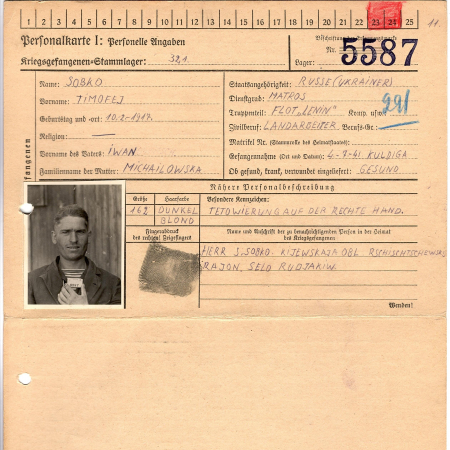 1 2 3 4 5 6 7 8 9 10 11 12 13 14 15 16 17 18 19 20 21 22 23 24 25
11.
Personalkarte I: Personelle Angaben
Kriegsgefangenen-Stammlager: 321
Nr. 5587
Lager:
Name: SOBKO
Vorname: TIMOFEJ
Geburtstag und -ort: 10.2.1917.
Religion: —
Vorname des Vaters: IWAN
Familienname der Mutter: MICHAILOWSKA
Staatsangehörigkeit: RUSSE (UKRAINER)
Dienstgrad: MATROS
Truppenteil: FLOT „LENIN" Komp. usw.:
Zivilberuf: LANDARBEITER Berufs-Gr.:
291
Matrikel Nr. (Stammrolle des Heimatstaates):
Gefangennahme (Ort und Datum): 4.7.41 KULDIGA
Ob gesund, krank, verwundet eingeliefert: GESUND
Nähere Personalbeschreibung
Größe Haarfarbe Besondere Kennzeichen:
162 DUNKEL BLOND TETOWIERUNG AUF DER RECHTE HAND.
Fingerabdruck
des rechten Zeigefingers
Name und Anschrift der zu benachrichtigenden Person in der Heimat
des Kriegsgefangenen:
HERR S. SOBKO. KIJEWSKAJA OBL. RSCHISCHTSCHEWSKI
RAJON, SELO RUDJAKIW.
Wenden!